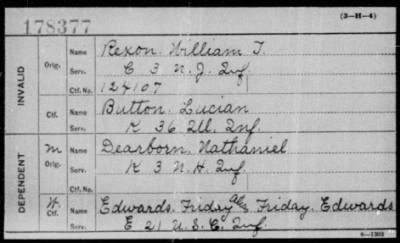 178377
(3-H-4)
INVALID
Orig. Name Rexon. William T.
Serv. C 3 N. J. Inf.
Ctf. No. 124107
Ctf. Name Button. Lucian
Serv. K 36 Ill. Inf.
DEPENDENT
M Orig. Name Dearborn. Nathaniel
Serv. K 3 N. H. Inf.
W. Ctf. Name Edwards. Friday als Friday. Edwards
Serv. E 21 U. S. C. Inf.